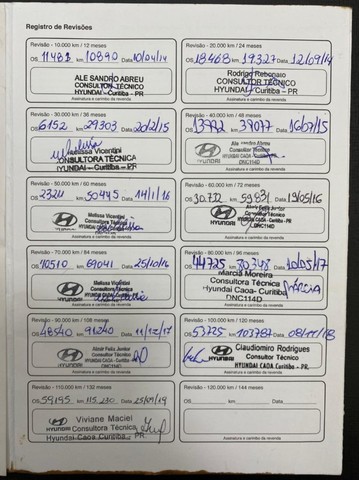 Registro de Revisões
Revisão - 10.000 km / 12 meses
OS 11481 km 10890 Data 10/04/14
ALE SANDRO ABREU
CONSULTOR TÉCNICO
HYUNDAI - Curitiba - PR
Assinatura e carimbo da revenda
Revisão - 20.000 km / 24 meses
OS 18468 km 19327 Data 12/09/14
Rodrigo Rebonato
CONSULTOR TÉCNICO
HYUNDAI Curitiba - PR
Assinatura e carimbo da revenda
Revisão - 30.000 km / 36 meses
OS 6152 km 29303 Data 20/2/15
Melissa Vicentini
CONSULTORA TÉCNICA
HYUNDAI - Curitiba - PR
Assinatura e carimbo da revenda
Revisão - 40.000 km / 48 meses
OS 13792 km 39077 Data 16/07/15
Consultor Técnico
HYUNDAI CAOA
DNC114D
Assinatura e carimbo da revenda
Revisão - 50.000 km / 60 meses
OS 2324 km 50445 Data 14/1/16
Melissa Vicentini
HYUNDAI
Assinatura e carimbo da revenda
Revisão - 60.000 km / 72 meses
OS 30.772 km 59831 Data 19/05/16
Consultor Técnico
HYUNDAI CAOA - Curitiba
DNC114D
Assinatura e carimbo da revenda
Revisão - 70.000 km / 84 meses
OS 10510 km 69041 Data 25/10/16
Melissa Vicentini
HYUNDAI
Assinatura e carimbo da revenda
Revisão - 80.000 km / 96 meses
OS 44725 km 80348 Data 10/05/17
Marcia Moreira
Consultora Técnica
Hyundai Caoa- Curitiba
DNC114D
MÁRCIA
Assinatura e carimbo da revenda
Revisão - 90.000 km / 108 meses
OS 48540 km 91240 Data 11/12/17
Adnoir Felix Junior
Consultor Técnico
HYUNDAI CAOA - Curitiba
DNC114D
Assinatura e carimbo da revenda
Revisão - 100.000 km / 120 meses
OS 53725 km 103787 Data 08/11/18
Claudiomiro Rodrigues
Consultor Técnico
HYUNDAI CAOA Curitiba - PR.
Assinatura e carimbo da revenda
Revisão - 110.000 km / 132 meses
OS 59195 km 115.230 Data 25/09/19
Viviane Maciel
Consultora Técnica
Hyundai Caoa Curitiba - PR
Assinatura e carimbo da revenda
Revisão - 120.000 km / 144 meses
OS km Data
Assinatura e carimbo da revenda